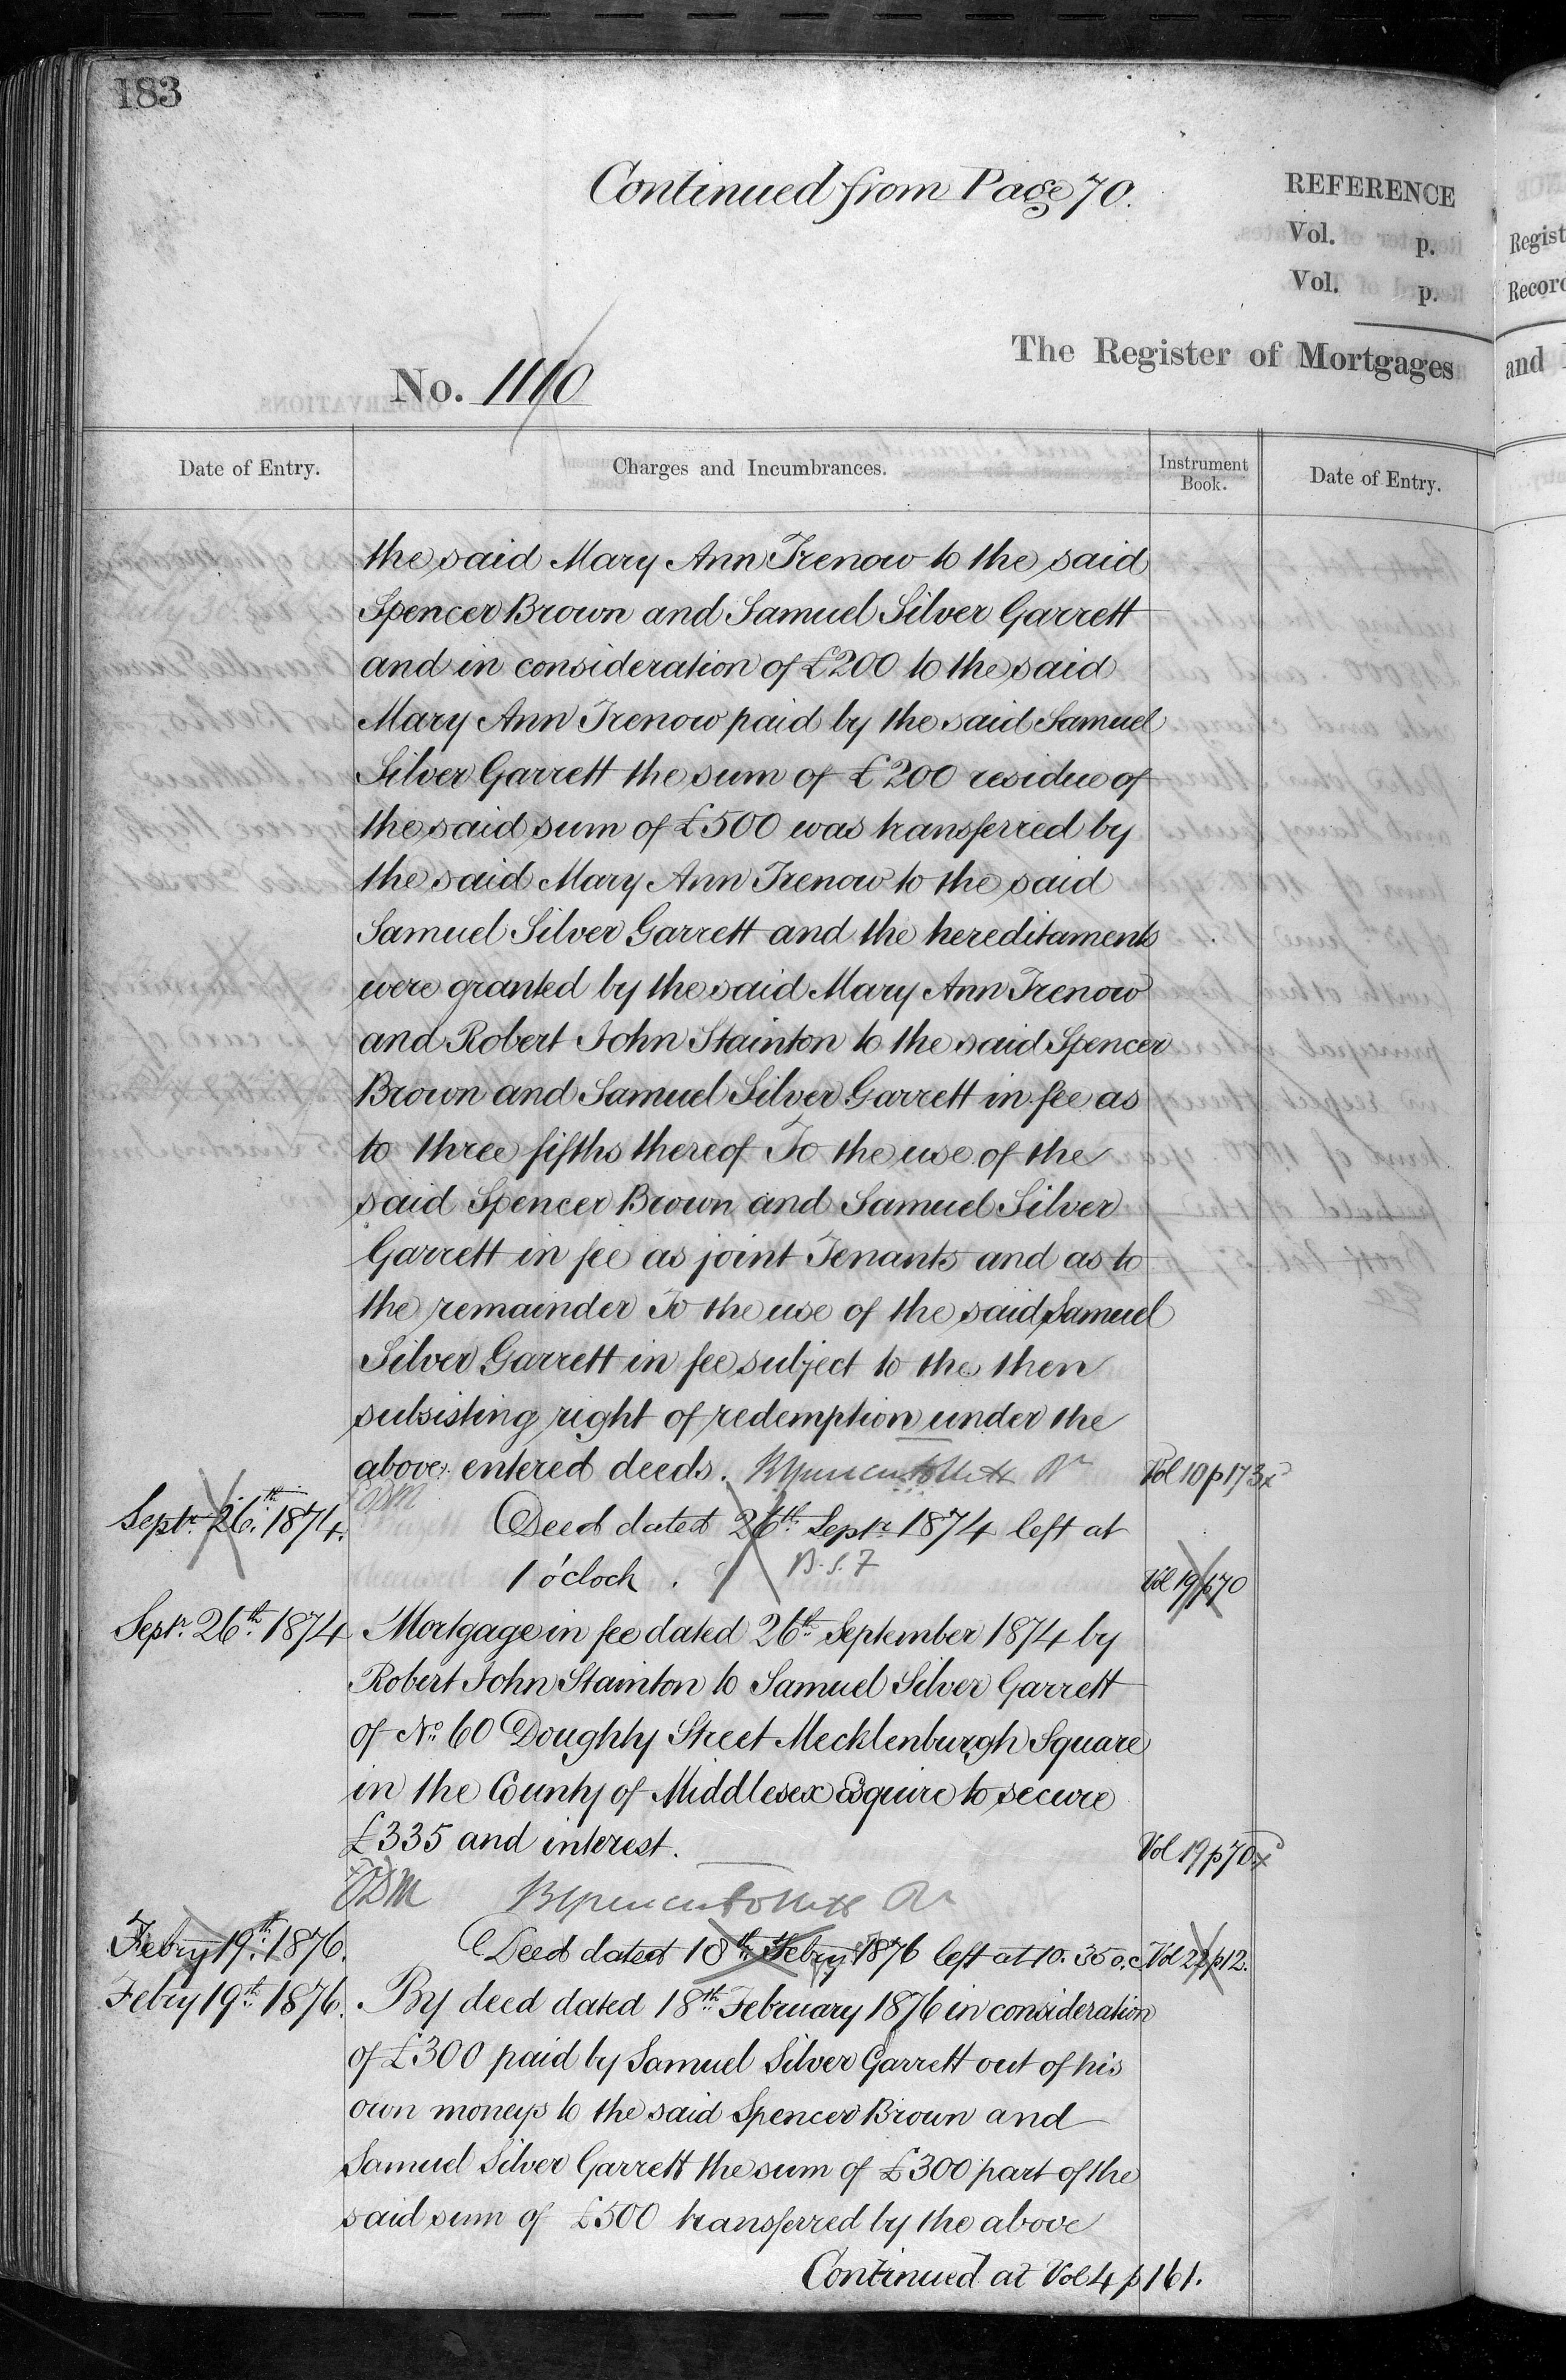 183
Continued from Page 70.
REFERENCE
Vol. p.
Vol. p.
The Register of Mortgages
No. 1110
Date of Entry.
Charges and Incumbrances.
Instrument Book.
Date of Entry.
the said Mary Ann Trenow to the said
Spencer Brown and Samuel Silver Garrett
and in consideration of £200 to the said
Mary Ann Trenow paid by the said Samuel
Silver Garrett the sum of £200 residue of
the said sum of £500 was transferred by
the said Mary Ann Trenow to the said
Samuel Silver Garrett and the hereditaments
were granted by the said Mary Ann Trenow
and Robert John Stainton to the said Spencer
Brown and Samuel Silver Garrett in fee as
to three fifths thereof To the use of the
said Spencer Brown and Samuel Silver
Garrett in fee as joint Tenants and as to
the remainder To the use of the said Samuel
Silver Garrett in fee subject to the then
subsisting right of redemption under the
above entered deeds. Vol 10 p 173
Septr. 26th. 1874. Deed dated 26th. Septr. 1874 left at
1 o'clock. B.S.F Vol 19 p 70
Septr. 26th. 1874 Mortgage in fee dated 26th. September 1874 by
Robert John Stainton to Samuel Silver Garrett
of No. 60 Doughty Street Mecklenburgh Square
in the County of Middlesex Esquire to secure
£335 and interest. Vol 19 p 70
Febry 19th. 1876. Deed dated 18th. Febry 1876 left at 10.35 o.c. Vol 22 p 12.
Febry 19th. 1876. By deed dated 18th. February 1876 in consideration
of £300 paid by Samuel Silver Garrett out of his
own moneys to the said Spencer Brown and
Samuel Silver Garrett the sum of £300 part of the
said sum of £500 transferred by the above
Continued at Vol 4 p 161.
Regist
Record
and